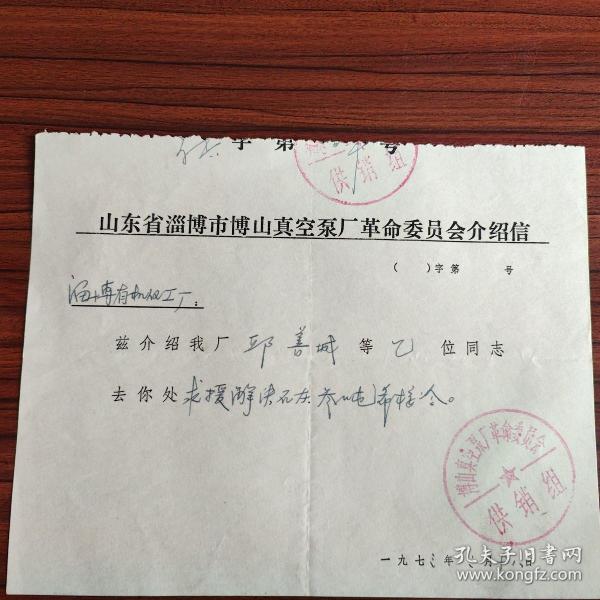 字第 号
供销组
山东省淄博市博山真空泵厂革命委员会介绍信
( )字第 号
淄博有机化工厂：
兹介绍我厂 邱善城 等 乙 位同志
去你处求援解决石灰
博山真空泵厂革命委员会
供销组
一九七 年 月 八日
孔夫子旧书网
www.kongfz.com